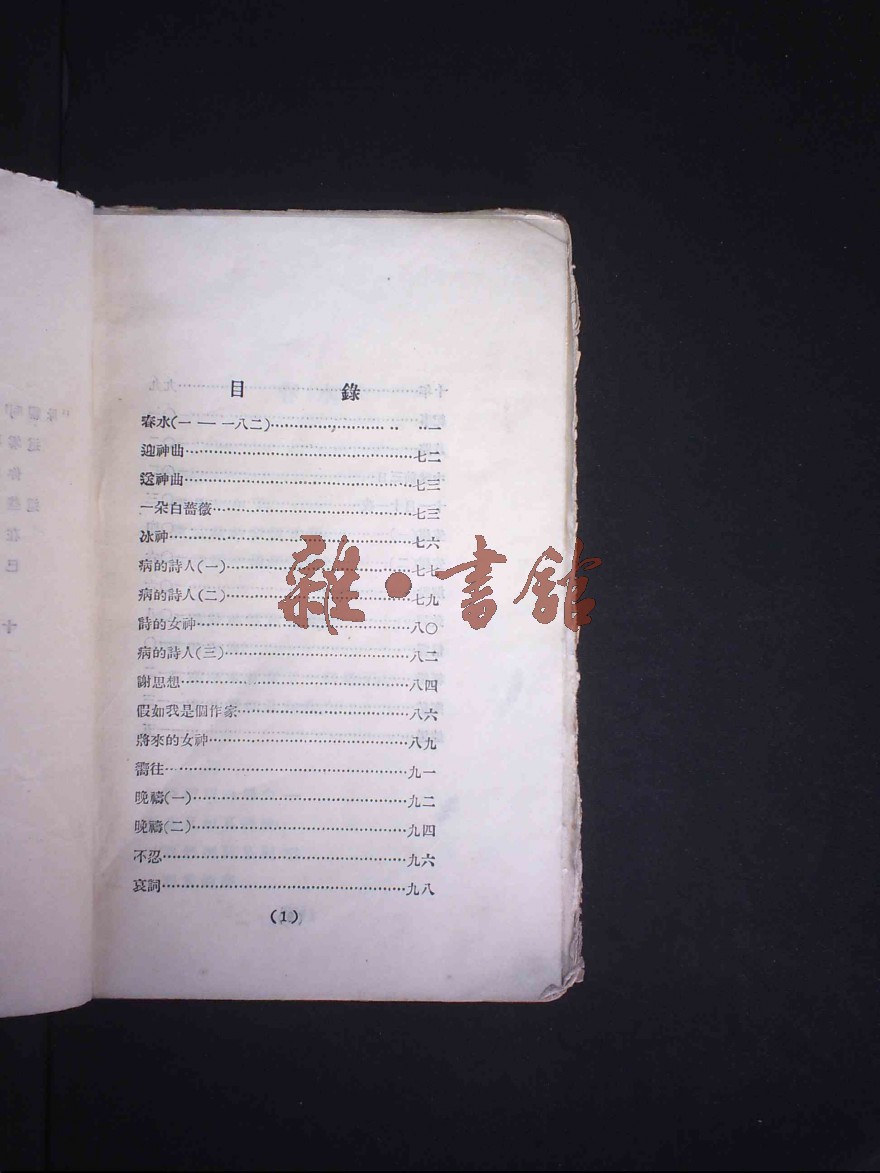 目 錄
春水(一 — 一八二)……………………一
迎神曲……………………七二
送神曲……………………七三
一朶白薔薇……………………七三
冰神……………………七六
病的詩人(一)……………………七七
病的詩人(二)……………………七九
詩的女神……………………八〇
病的詩人(三)……………………八二
謝思想……………………八四
假如我是個作家……………………八六
將來的女神……………………八九
嚮往……………………九一
晚禱(一)……………………九二
晚禱(二)……………………九四
不忍……………………九六
哀詞……………………九八
(1)
雜·書館